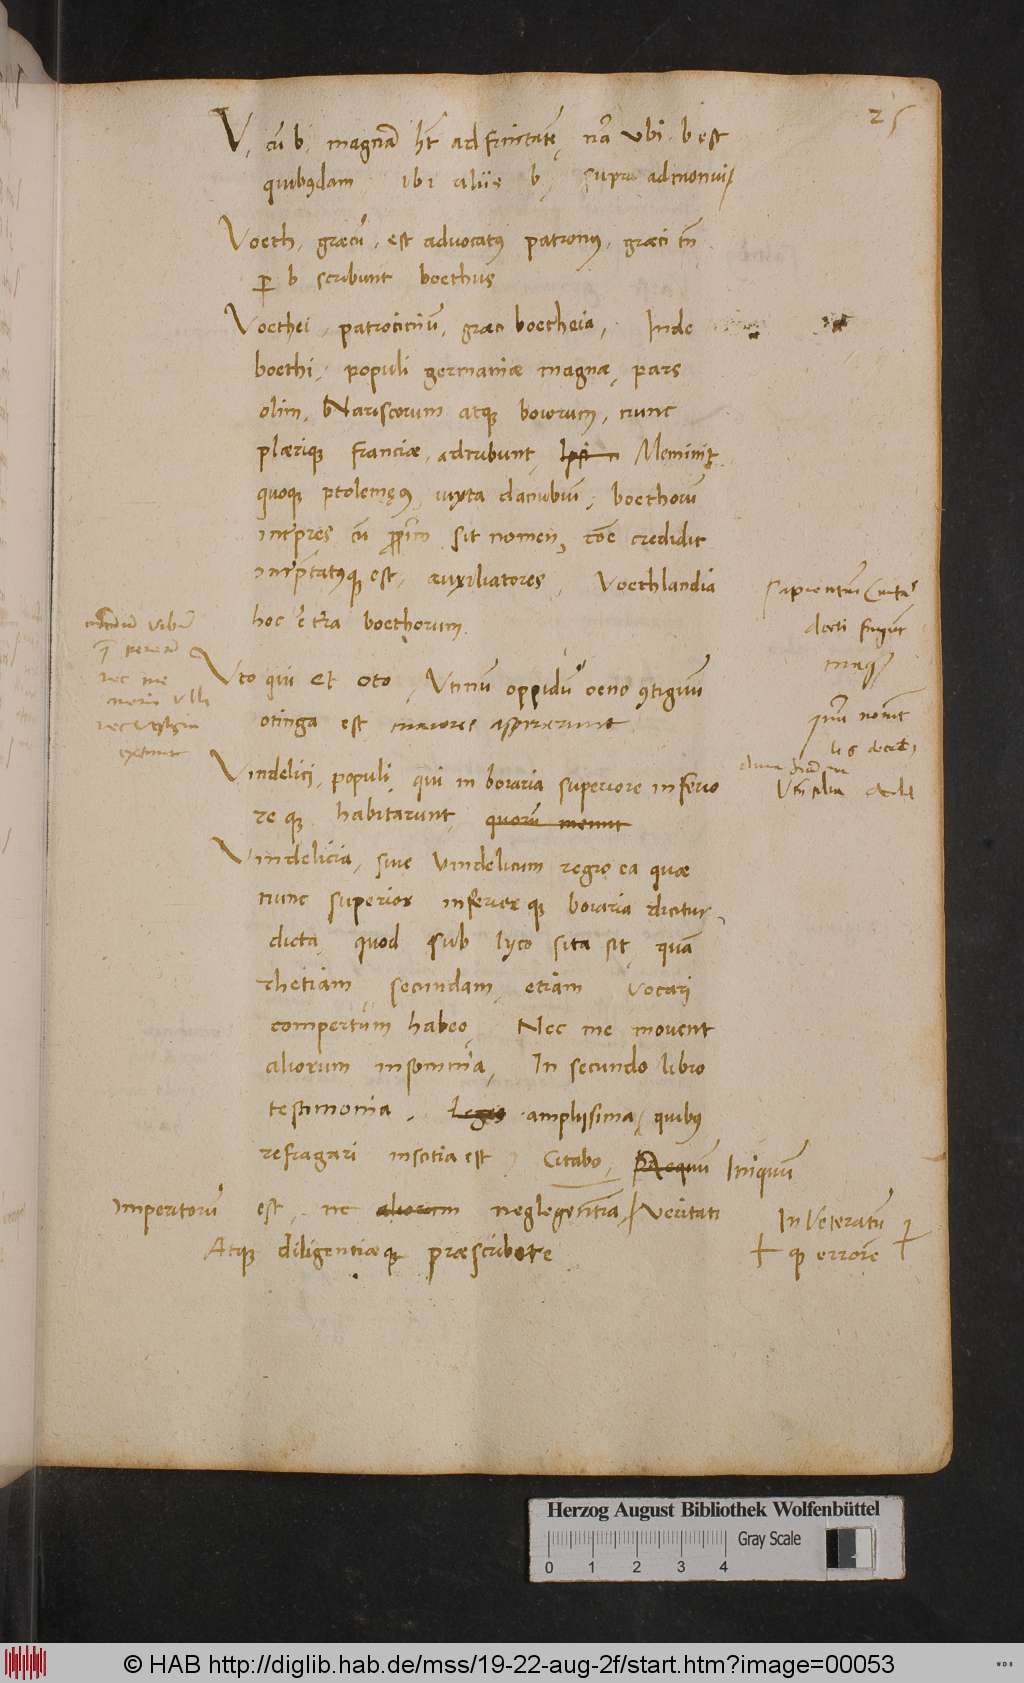 25
V, cū b, magnā hēt adfinitatē, nā ubi b est
quibusdam ibi aliis b, supra admonui
Voeth, græcū, est advocatus patronus, græci tn̄
per b scribunt boethus
Voethei, patrociniū, græci boetheia, Inde
boethi, populi germaniæ magnæ, pars
olim, Nariscorum atque boiorum, nunc
plærique franciæ, adcribunt, Meminit
quoque ptolemęus, iuxta danubiū, boethorū
interpres cū ppriū sit nomen, cōe credidit
interptatusque est, auxiliatores, Voethlandia
hoc ē terra boethorum
Vto qui et oto, Vtinū oppidū oeno 9tiguū
otinga est maiores asseruerunt
Vindelici, populi, qui in boiaria superiore inferio
re que habitarunt, quorū
Vindelicia, sive Vindelicum regio ea quæ
nunc superior inferior que boiaria dicitur,
dicta, quod sub lyco sita sit, quā
rhetiam secundam, etiam vocari
compertum habeo, Nec me movent
aliorum insomnia, In secundo libro
testimonia, amplissima, quibus
refragari inscitia est, Citabo, Iniquum
imperitorū est, ne aliorum neglegentia, veritati
Inveteratū
que errorē
Atque diligentiæque præscribere
docti fingunt
nec me
Herzog August Bibliothek Wolfenbüttel
0 1 2 3 4 Gray Scale
© HAB http://diglib.hab.de/mss/19-22-aug-2f/start.htm?image=00053